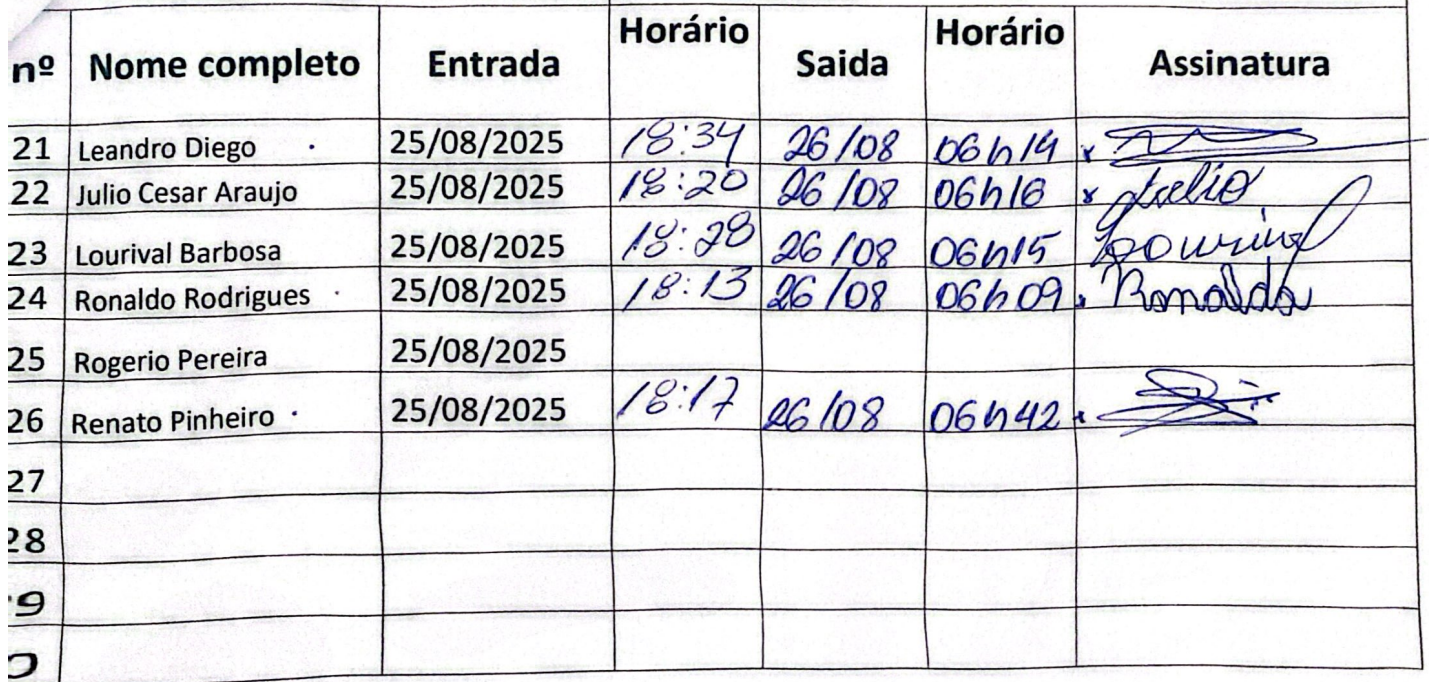 nº Nome completo Entrada Horário Saida Horário Assinatura
21 Leandro Diego 25/08/2025 18:34 26/08 06h14 x
22 Julio Cesar Araujo 25/08/2025 18:20 26/08 06h16 x Julio
23 Lourival Barbosa 25/08/2025 18:28 26/08 06h15 Lourival
24 Ronaldo Rodrigues 25/08/2025 18:13 26/08 06h09 Ronaldo
25 Rogerio Pereira 25/08/2025
26 Renato Pinheiro 25/08/2025 18:17 26/08 06h42
27
28
9